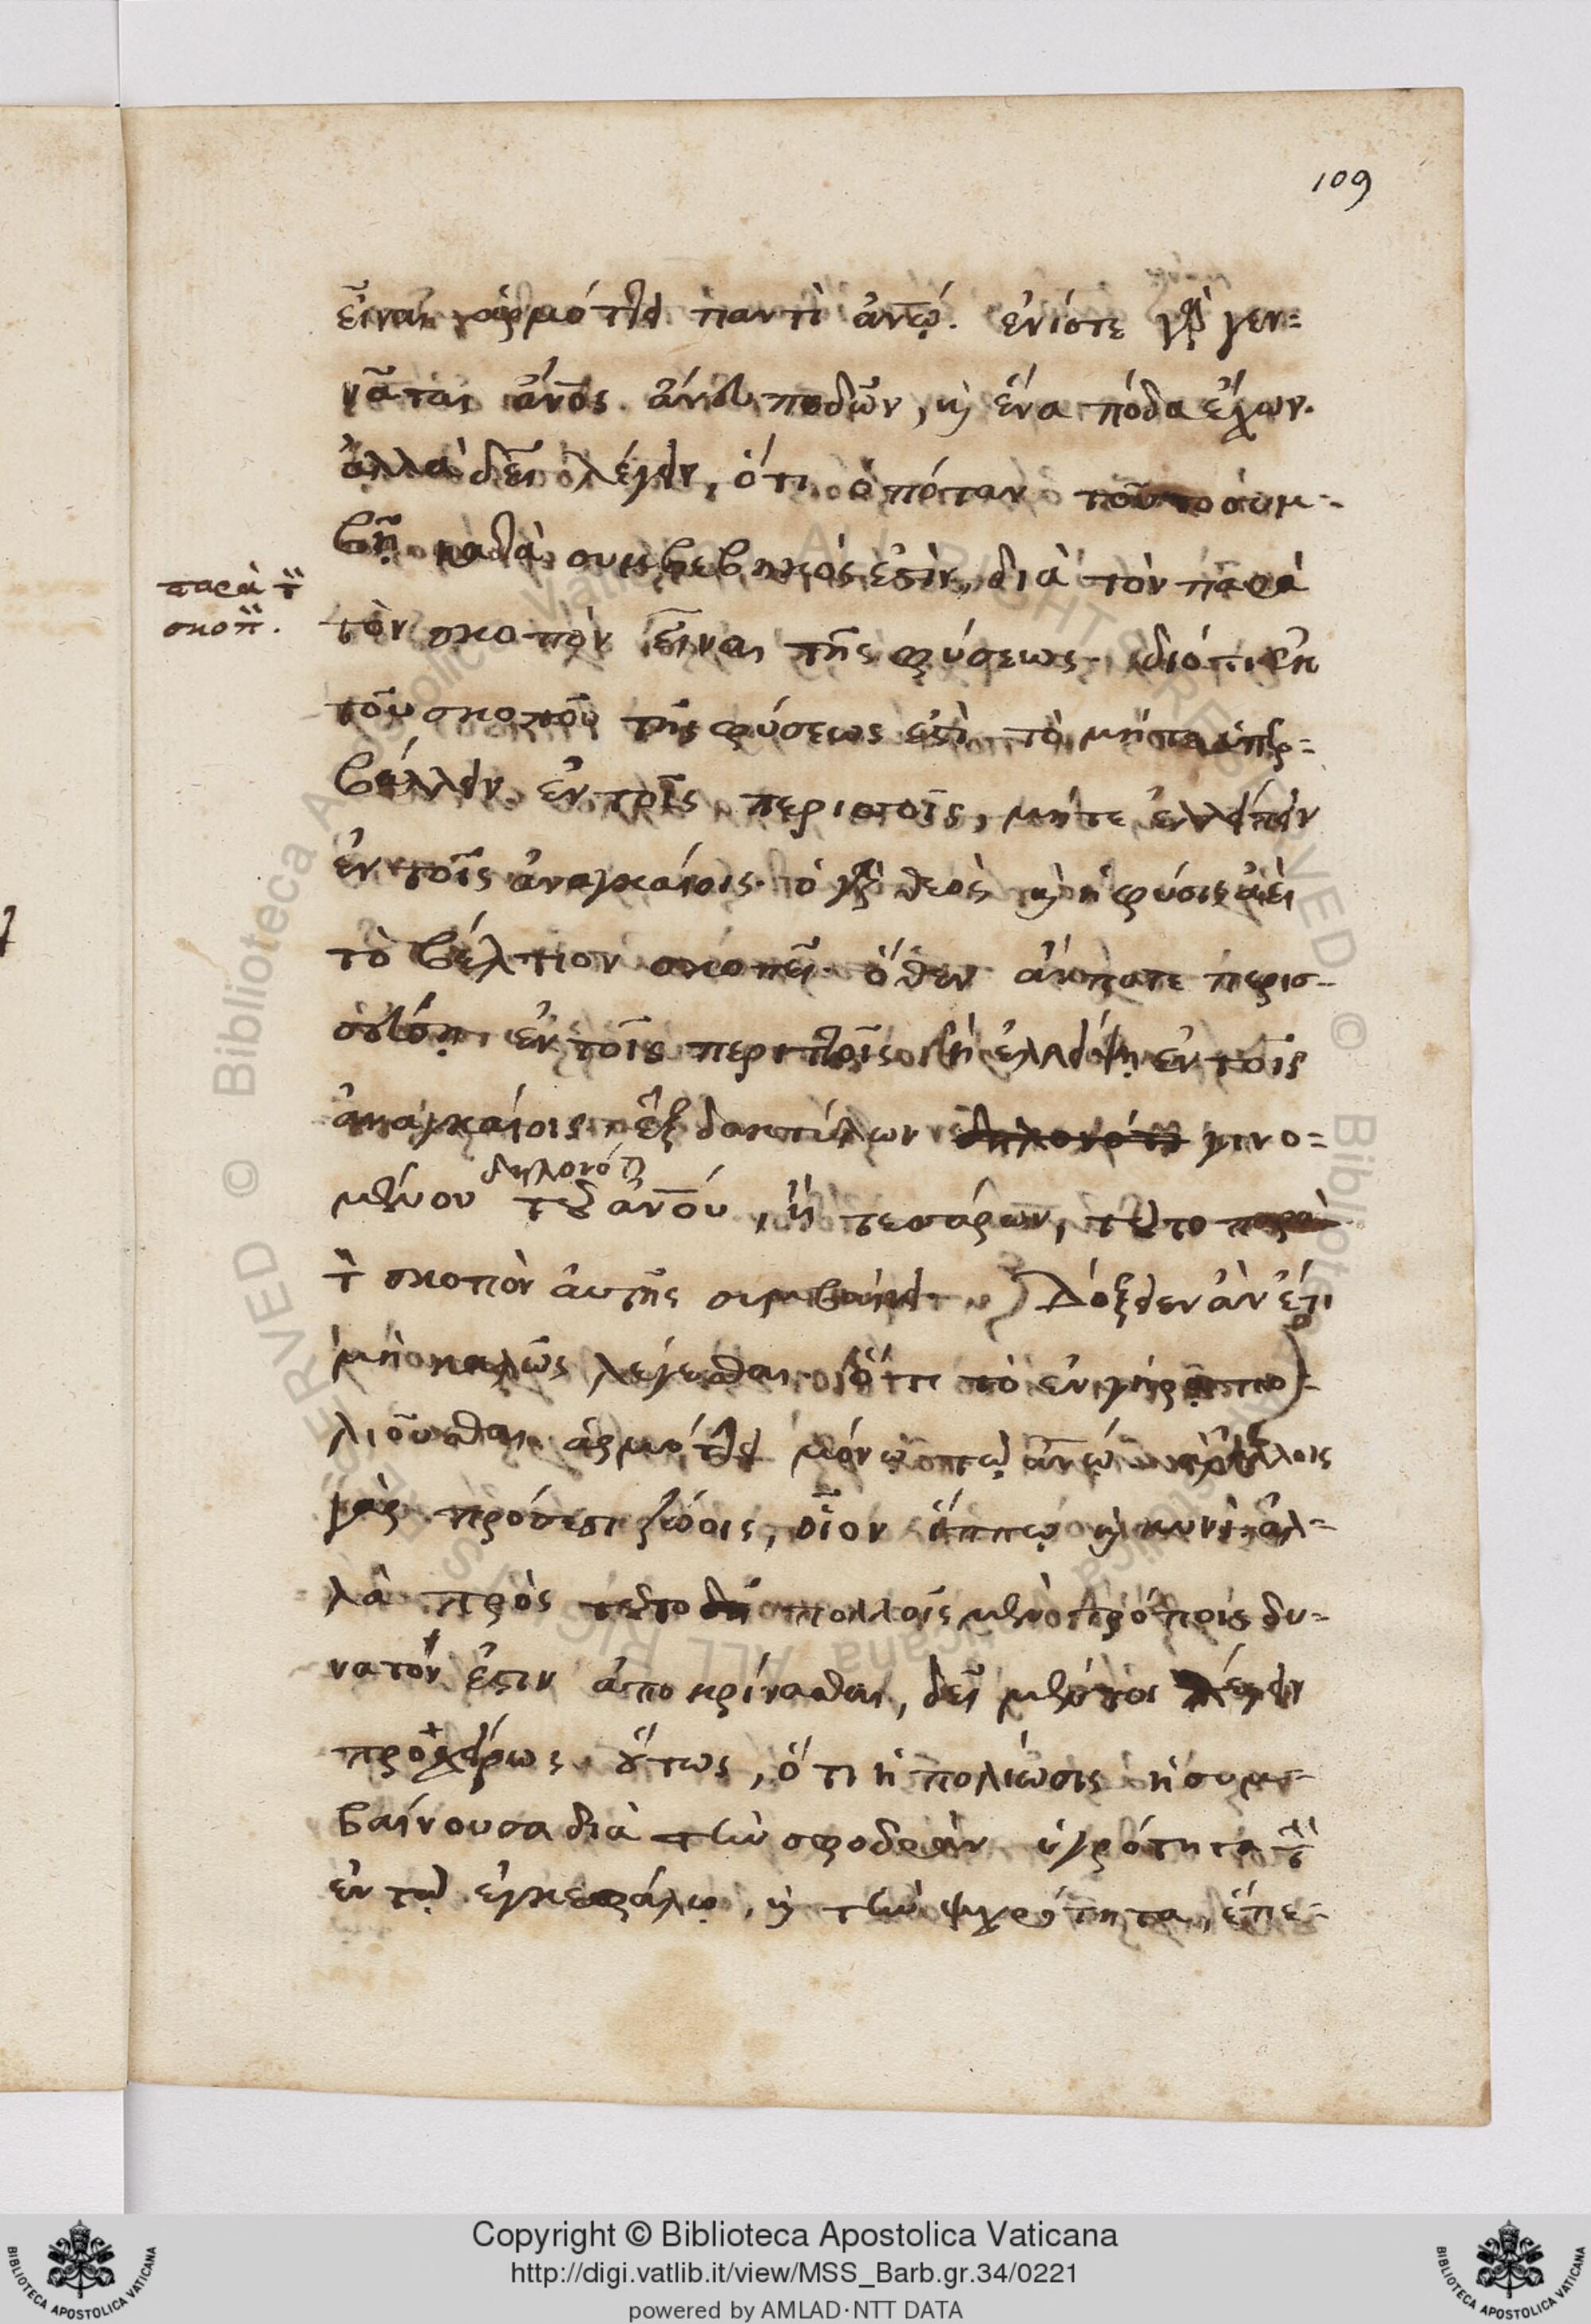 109
εἶναι ἁρμόττει παντὶ ἀν̅ῳ. ἐνίοτε γὰρ γεν=
νᾶται ἄν̅ος ἄνευ ποδῶν, κὴ ἕνα πόδα ἔχων.
ἀλλὰ δεῖ λέγειν, ὅτι ὁπόταν τοῦτο συμ=
βῇ κατὰ συμβεβηκός ἐστιν, διὰ τὸν παρὰ
παρὰ τ̀
σκοπ̀.
τὸν σκοπὸν εἶναι τῆς φύσεως. διότι ἐκ
τοῦ σκοποῦ τῆς φύσεως ἐστὶ τὸ μήτε ὑπερ=
βάλλειν ἐν τοῖς περιττοῖς, μήτε ἐλλείπειν
ἐν τοῖς ἀναγκαίοις. ὁ γὰρ θεὸς κὴ ἡ φύσις ἀεὶ
τὸ βέλτιον σκοπεῖ. ὅθεν ἄν ποτε περισ=
σεύσῃ ἐν τοῖς περιττοῖς ἢ ἐλλείψῃ ἐν τοῖς
ἀναγκαίοις, ἓξ δακτύλων δηλονότι γινο=
δηλονότι
μένου τοῦ ἀν̅ου, ἢ τεσσάρων, τοῦτο παρὰ
τ̀ σκοπὸν αὐτῆς συμβαίνει. Δόξειεν ἂν ἔτι
μὴ καλῶς λέγεσθαι ὅτι τὸ ἐν γήρᾳ πο=
λιοῦσθαι ἁρμόττει μόνῳ τῷ ἀν̅ῳ ἄλλοις
γὰρ πρόσεστι ζώοις, οἷον ἵππῳ κὴ κυνὶ, ἀλ=
λὰ πρὸς τοῦτο πολλοῖς μὲν τρόποις δυ=
νατόν ἐστιν ἀποκρίνασθαι, δεῖ μέντοι λέγειν
προχείρως οὕτως, ὅτι ἡ πολίωσις ἡ συμ=
βαίνουσα διὰ τὴν σφοδρὰν ὑγρότητα τ̀
ἐν τῷ ἐγκεφάλῳ, κὴ τὴν ψυχρότητα, ἕπε=
Copyright © Biblioteca Apostolica Vaticana
http://digi.vatlib.it/view/MSS_Barb.gr.34/0221
powered by AMLAD·NTT DATA